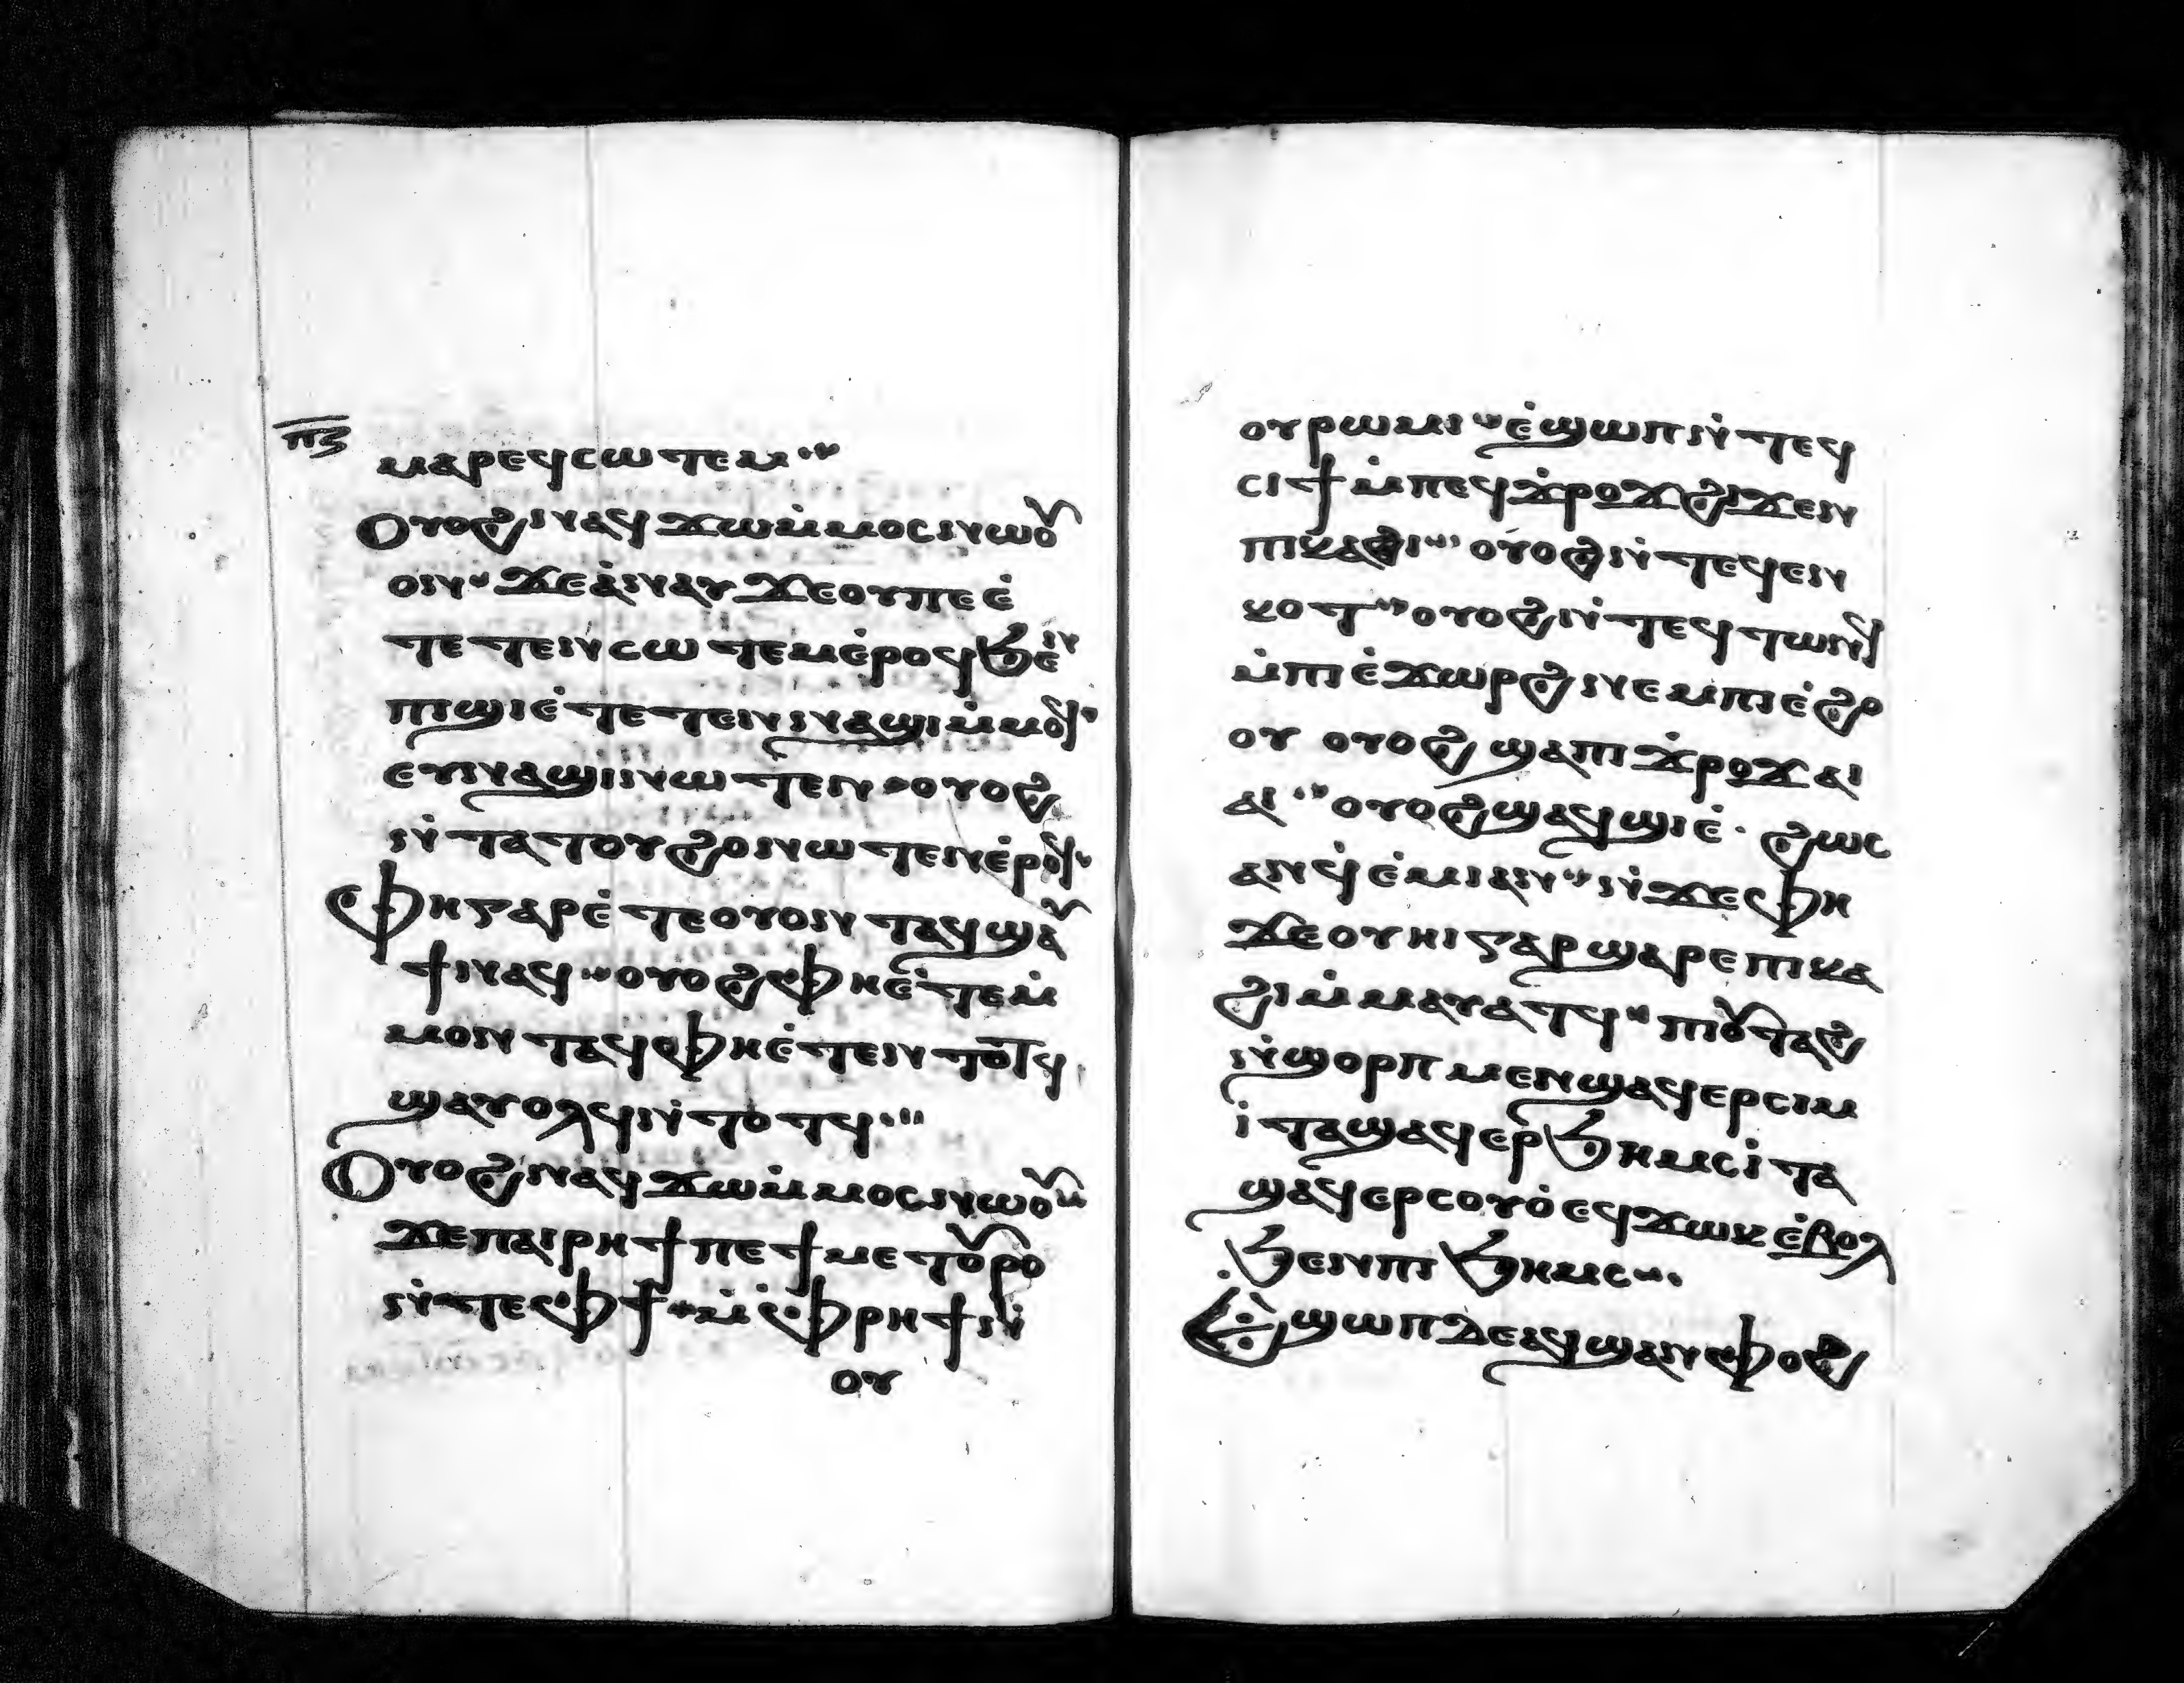 ⲡⲍ
ⲙⲁⲣⲉϥⲥⲱⲧⲉⲙ
Ⲟⲩⲟϩ ⲛⲁϥϫⲱ ⲙ̇ⲙⲟⲥ ⲛⲱⲟⲩ
ⲟⲛ ϫⲉ ⲁ̇ⲛⲁⲩ ϫⲉ ⲟⲩ ⲡⲉ ⲉ̇
ⲧⲉⲧⲉⲛⲥⲱⲧⲉⲙ ⲉ̇ⲣⲟϥ ϧⲉⲛ
ⲡⲓϣⲓ ⲉ̇ⲧⲉⲧⲉⲛⲛⲁϣⲓ ⲙ̇ⲙⲟϥ
ⲉⲩⲛⲁϣⲓ ⲛⲱⲧⲉⲛ ⲟⲩⲟϩ
ⲛ̇ⲧⲁⲧⲟⲩϩⲟ ⲛⲱⲧⲉⲛ ⲉ̇ⲣⲟϥ
Ⲫⲏ ⲅⲁⲣ ⲉ̇ⲧⲉ ⲟⲩⲟⲛ ⲧⲁϥ ϣⲁⲩ
ϯ ⲛⲁϥ ⲟⲩⲟϩ ⲫⲏ ⲉ̇ⲧⲉ ⲙ̇
ⲙⲟⲛ ⲧⲁϥ ⲫⲏ ⲉ̇ⲧⲉⲛⲧⲟⲧϥ
ϣⲁⲩⲟⲗϥ ⲛ̇ⲧⲟⲧϥ
Ⲟⲩⲟϩ ⲛⲁϥϫⲱ ⲙ̇ⲙⲟⲥ ⲛⲱⲟⲩ
ϫⲉ ⲡⲁⲓⲣⲏϯ ⲡⲉ ϯⲙⲉⲧⲟⲩⲣⲟ
ⲛ̇ⲧⲉ ⲫϯ ⲙ̇ⲫⲣⲏϯ ⲛ̇
ⲟⲩ
ⲟⲩⲣⲱⲙⲓ ⲉ̇ϣⲱⲡ ⲛ̇ⲧⲉϥ
ⲥⲓϯ ⲙ̇ⲡⲉϥϫ̇ⲣⲟϫ ϩⲓϫⲉⲛ
ⲡⲓⲕⲁϩⲓ ⲟⲩⲟϩ ⲛ̇ⲧⲉϥⲉⲛ
ⲕⲟⲧ ⲟⲩⲟϩ ⲛ̇ⲧⲉϥⲧⲱⲛϥ
ⲙ̇ⲡⲓⲉ̇ϫⲱⲣϩ ⲛⲉⲙ ⲡⲓⲉ̇ϩⲟ
ⲟⲩ ⲟⲩⲟϩ ϣⲁ ⲡⲓϫ̇ⲣⲟϫ ⲁⲓ
ⲁⲓ ⲟⲩⲟϩ ϣⲁϥϣⲓⲉ̇ ϩⲱⲥ
ⲁⲛϥ̇ⲉ̇ⲙⲓ ⲁⲛ ⲛ̇ϫⲉ ⲫⲏ
ϫⲉ ⲟⲩⲏⲓ ⲅⲁⲣ ϣⲁⲣⲉ ⲡⲓⲕⲁ
ϩⲓ ⲙ̇ⲙⲁⲩⲁⲧϥ ⲡⲓⲟⲩⲧⲁϩ
ⲛ̇ϣⲟⲣⲡ ⲙⲉⲛ ϣⲁϥⲉⲣⲥⲓⲙ
ⲓ̇ⲧⲁ ϣⲁϥⲉⲣϧⲏⲙⲥ ⲓ̇ⲧⲁ
ϣⲁϥⲉⲣⲥⲟⲩⲟ̇ ⲉϥϫⲱⲕ ⲉ̇ⲃⲟⲗ
ϧⲉⲛ ⲡⲓϧⲏⲙⲥ
Ⲉ̇ϣⲱⲡ ϫⲉ ⲁϥϣⲁⲛⲫⲟϩ